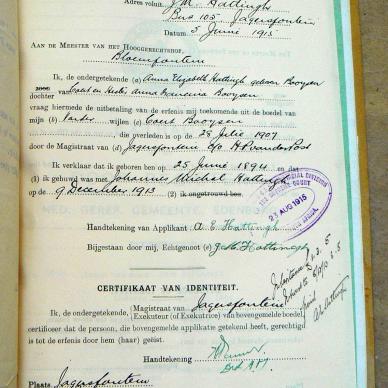 Adres voluit J. M. Hattingh
Bus 105. Jagersfontein
Datum 5 Junie 1915
AAN DE MEESTER VAN HET HOOGGERECHTSHOF,
Bloemfontein
Ik, de ondergetekende (a) Anna Elizabeth Hattingh geboren Booysen
zoon
dochter van Coert en Hester Anna Francina Booysen
vraag hiermede de uitbetaling van de erfenis mij toekomende uit de boedel van
mijn (b) Vader wijlen (c) Coert Booysen
die overleden is op de 28 Julie 1907
door de Magistraat van (d) Jagersfontein c/o H P van der Post
Ik verklaar dat ik geboren ben op 25 Junie 1894 en dat
(1) ik gehuwd was met Johannes Michel Hattingh
op de 9 December 1913 (2) ik ongetrouwd ben.
23 AUG 1915
Handtekening van Applikant A E Hattingh
Bijgestaan door mij, Echtgenoot (e) J M Hattingh
CERTIFIKAAT VAN IDENTITEIT.
Ik, de ondergetekende, Magistraat van Jagersfontein
Exekuteur (of Executrice) van bovengemelde boedel,
certificeer dat de persoon, die bovengemelde applikatie getekend heeft, gerechtigd
is tot de erfenis door hem (haar) geëist.
Handtekening
Plaats Jagersfontein